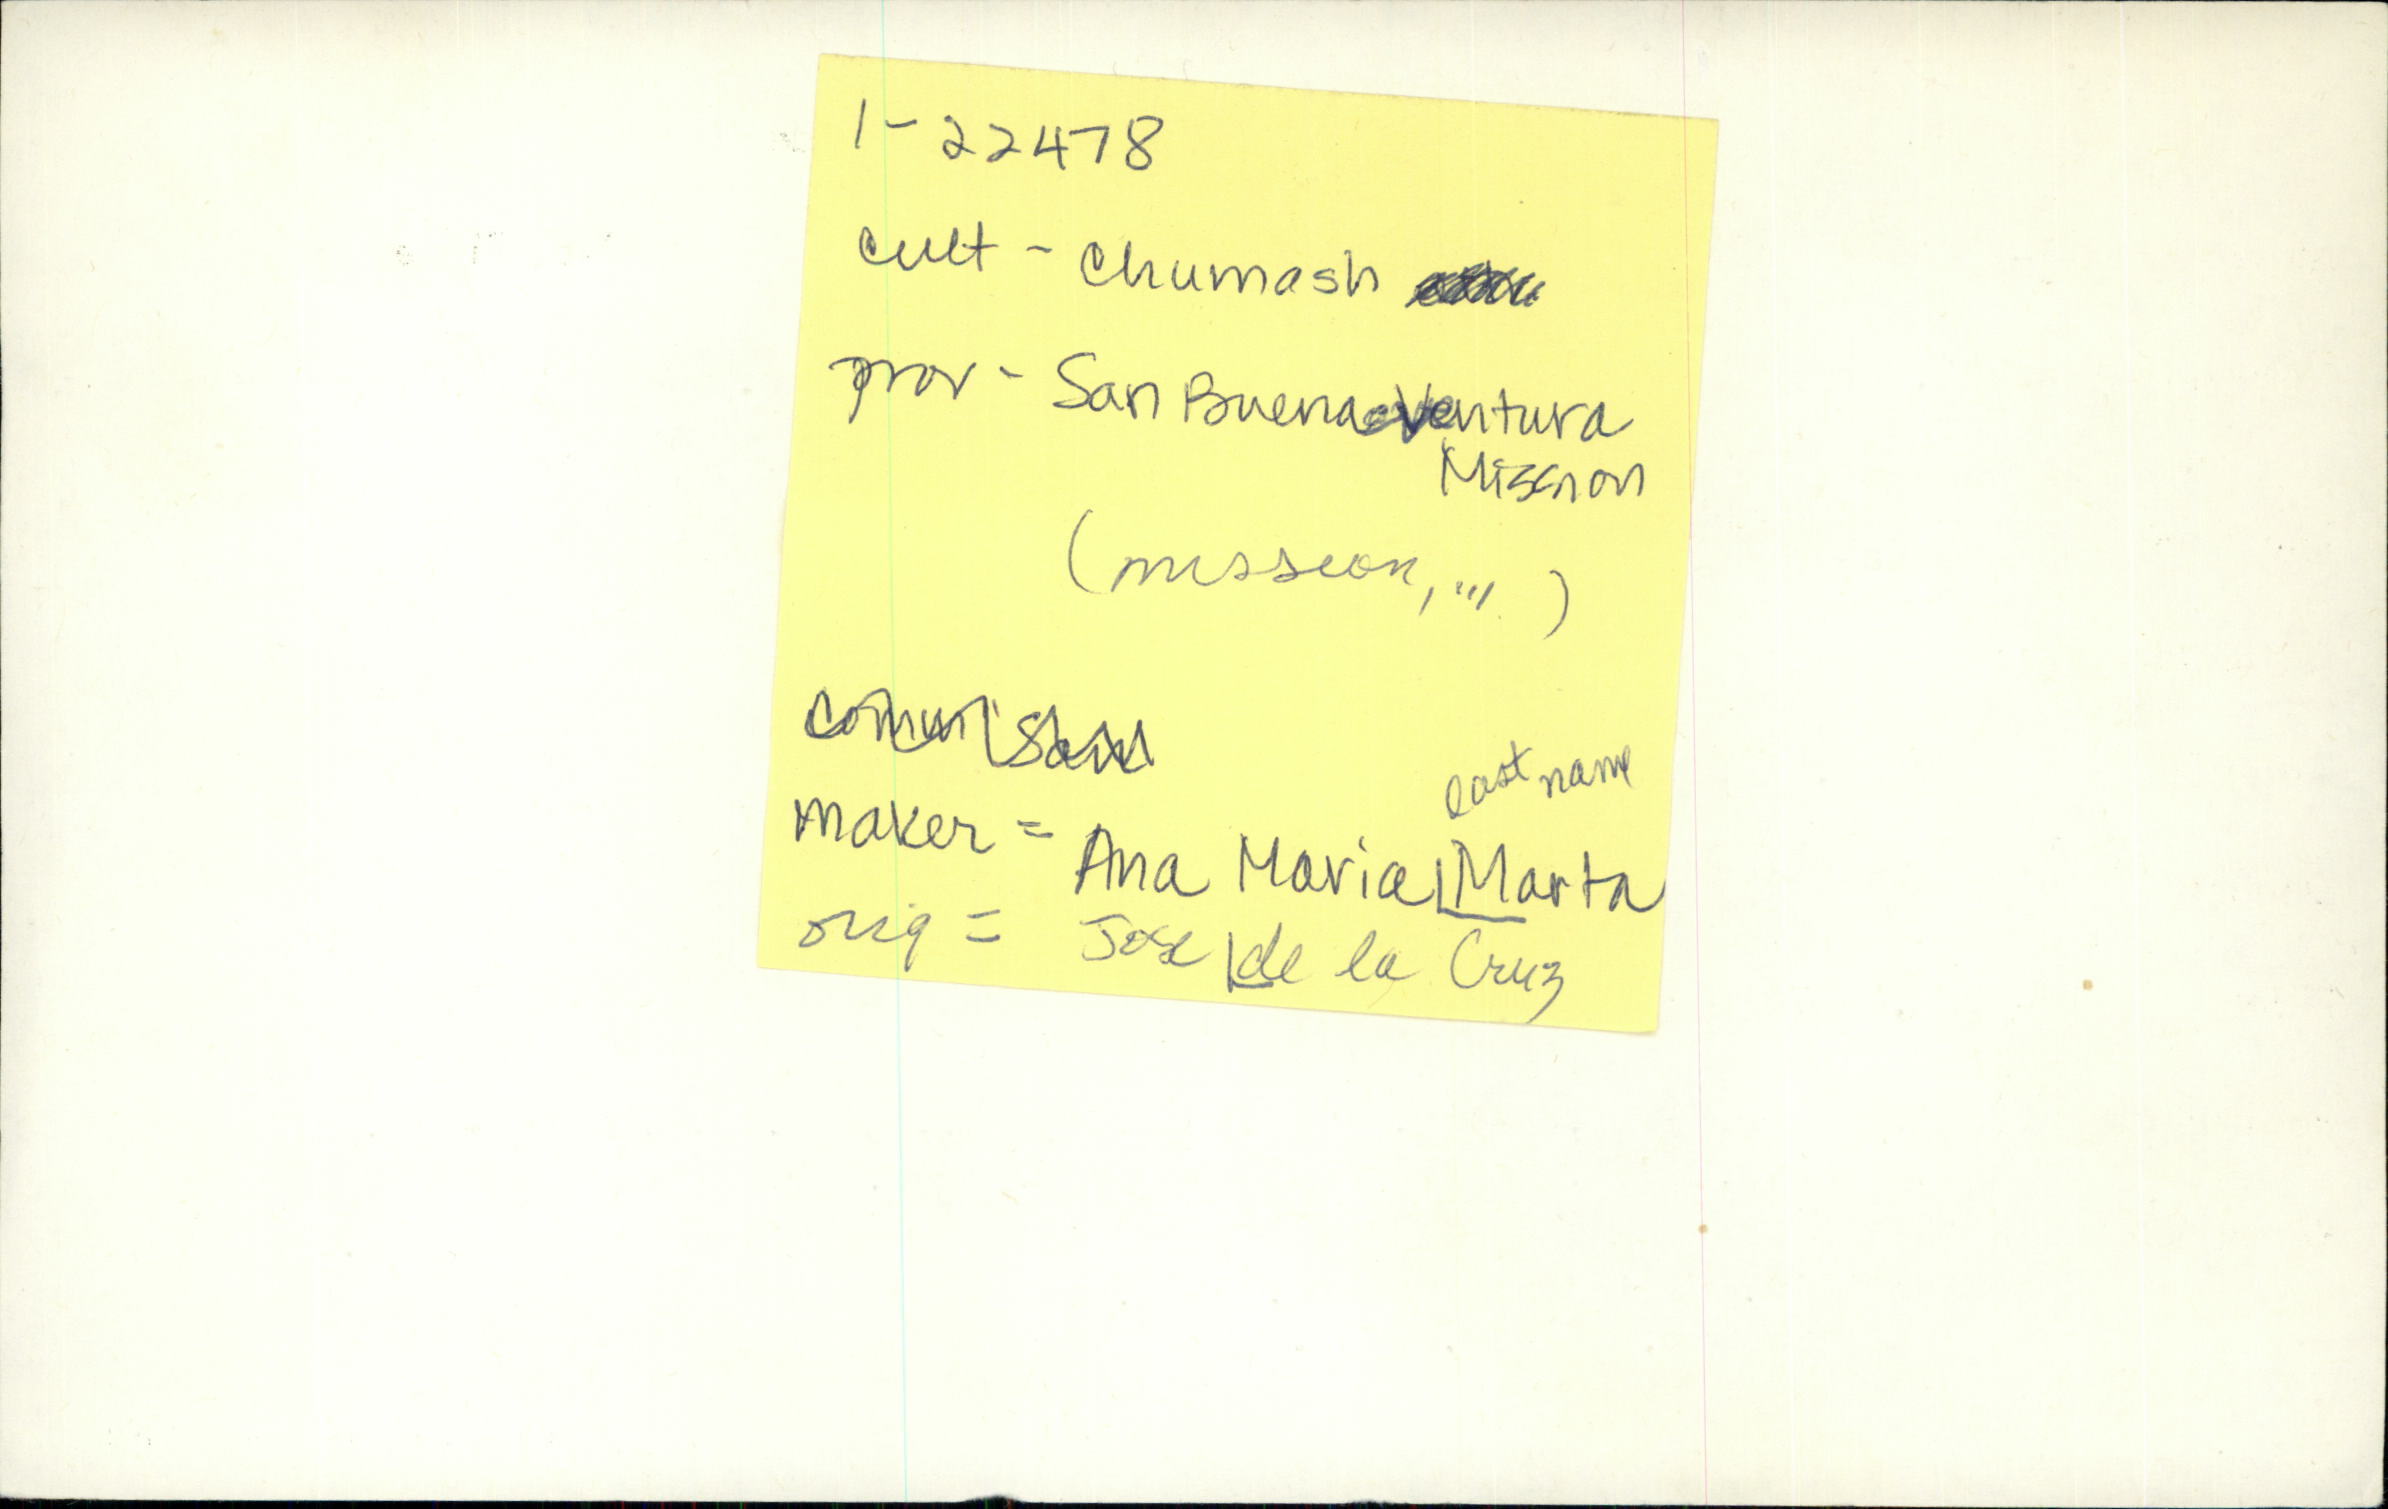 1-22478
cult - Chumash
prov - San Buena Ventura
Mission
(mission, "")
last name
maker = Ana Maria Marta
orig = Jose de la Cruz